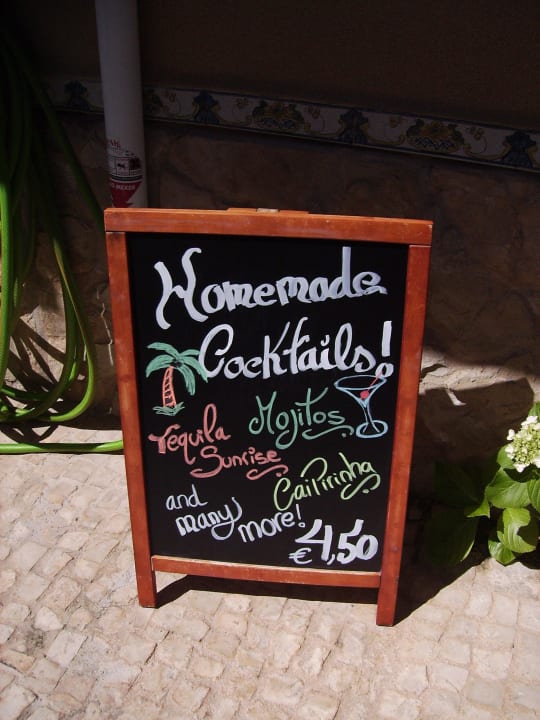 Homemade
Cocktails!
Mojitos
Tequila
Sunrise
Caipirinha
and
many
more!
€4,50